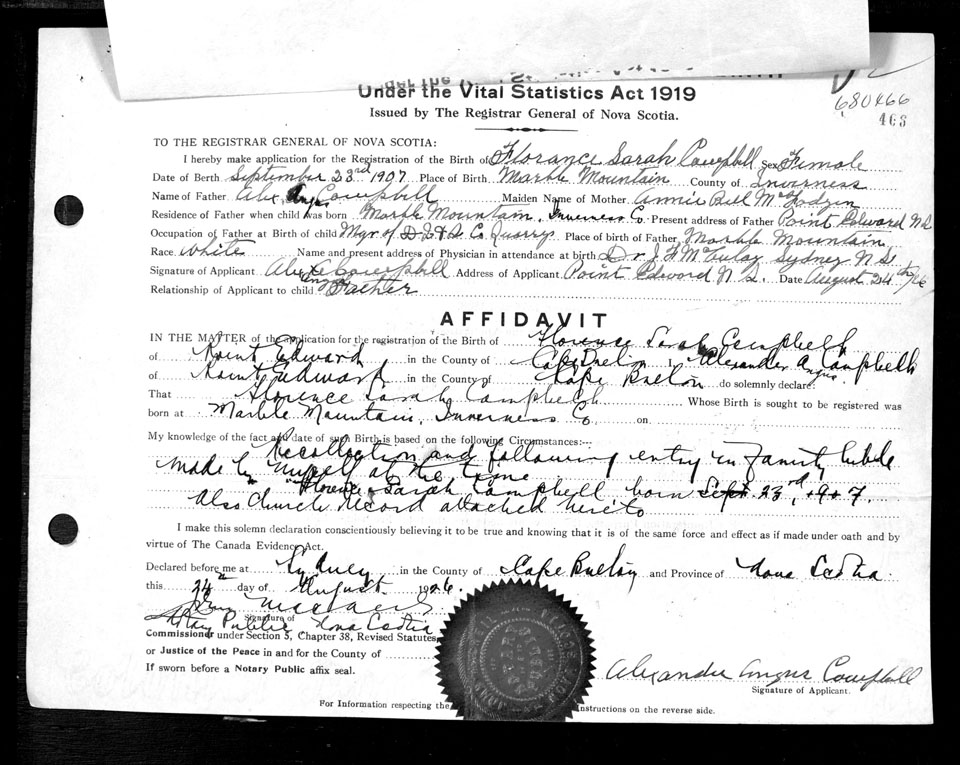 Under the Vital Statistics Act 1919
Issued by The Registrar General of Nova Scotia.
680466
468
TO THE REGISTRAR GENERAL OF NOVA SCOTIA:
I hereby make application for the Registration of the Birth of Florance Sarah Campbell Sex Female
Date of Birth September 23rd 1907 Place of Birth Marble Mountain County of Inverness
Name of Father Alex. Ang. Campbell Maiden Name of Mother Annie Bell
Residence of Father when child was born Marble Mountain, Inverness Co. Present address of Father Point Edward N.S.
Occupation of Father at Birth of child Mgr. of D. I. & S. Co Quarry Place of birth of Father Marble Mountain
Race White Name and present address of Physician in attendance at birth Dr. J. F. McAulay, Sydney N.S.
Signature of Applicant Alex Ang Campbell Address of Applicant Point Edward N.S. Date August 24th/26
Relationship of Applicant to child Father
AFFIDAVIT
IN THE MATTER of the application for the registration of the Birth of Florence Sarah Campbell
of Point Edward in the County of Cape Breton I, Alexander A. Campbell
Angus
of Point Edward in the County of Cape Breton do solemnly declare:
That Florence Sarah Campbell Whose Birth is sought to be registered was
born at Marble Mountain, Inverness Co. on
My knowledge of the fact and date of such Birth is based on the following Circumstances:--
Recollection and following entry in family bible
made by myself at the time
"Florence Sarah Campbell, born Sept. 23rd, 1907.
Also Church record attached hereto
I make this solemn declaration conscientiously believing it to be true and knowing that it is of the same force and effect as if made under oath and by
virtue of The Canada Evidence Act.
Declared before me at Sydney in the County of Cape Breton and Province of Nova Scotia
this 24th day of August 1926.
Signature of
Notary Public Nova Scotia
Commissioner under Section 3, Chapter 38, Revised Statutes,
or Justice of the Peace in and for the County of
If sworn before a Notary Public affix seal.
Alexander Angus Campbell
Signature of Applicant.
For Information respecting the
Instructions on the reverse side.